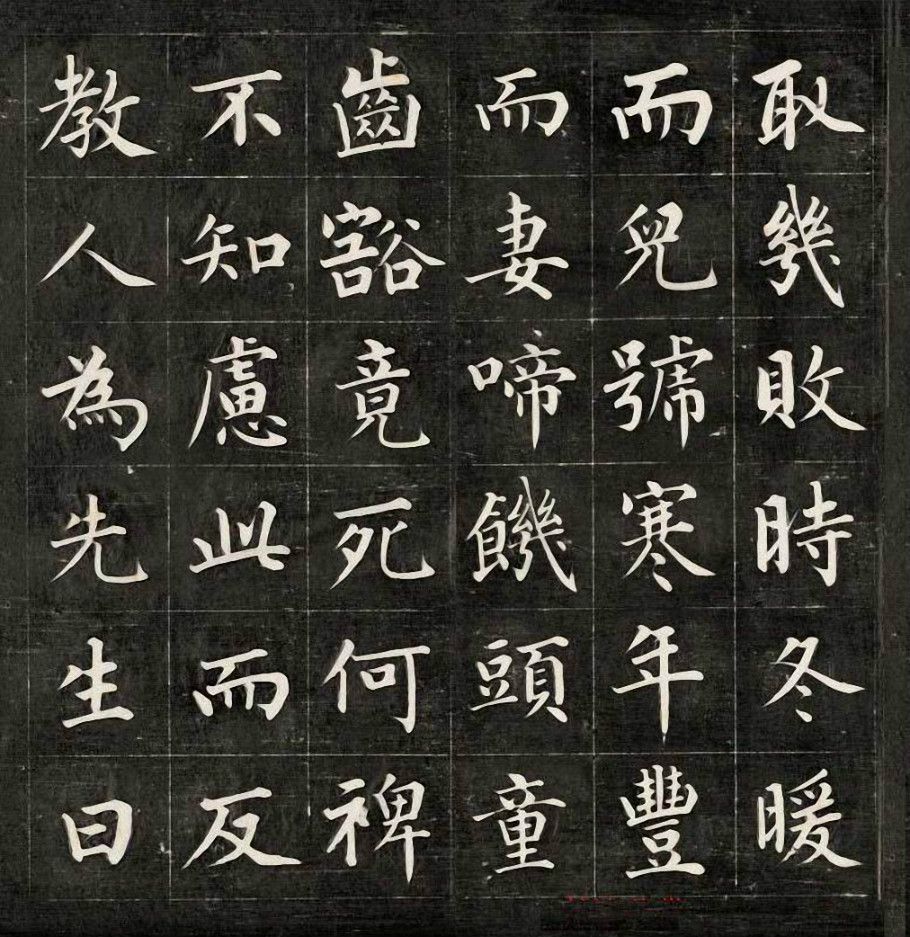 取幾敗時冬暖
而兒號寒年豐
而妻啼饑頭童
齒豁竟死何裨
不知慮此而反
教人為先生曰